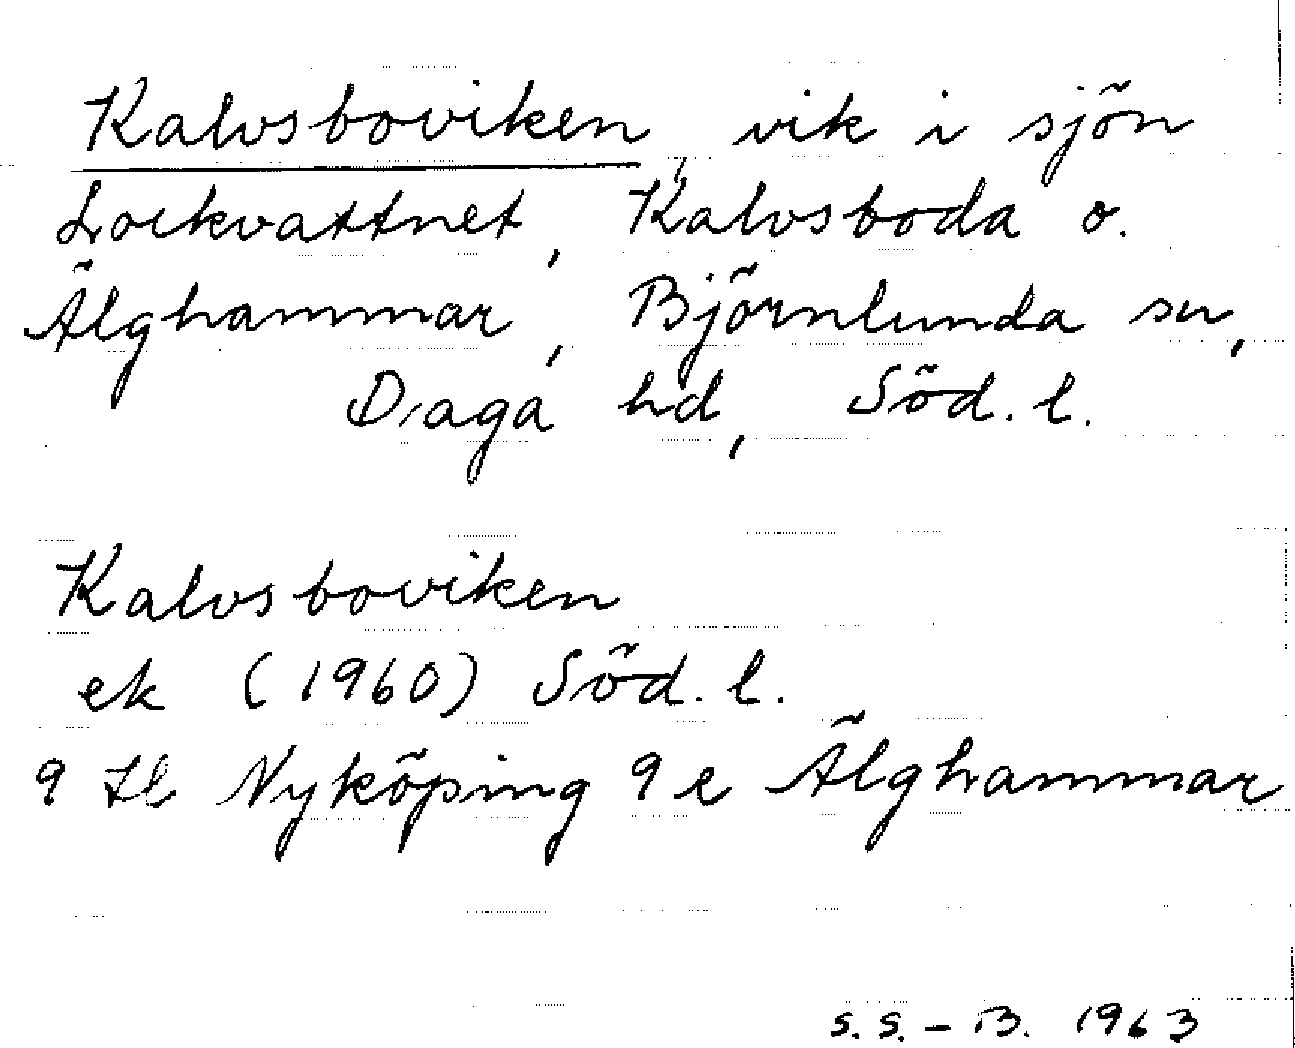 Kalvsboviken, vik i sjön
Lockvattnet, Kalvsboda o.
Älghammar, Björnlunda sn,
Daga hd, Söd. l.
Kalvsboviken
ek (1960) Söd. l.
9 Nyköping 9 e Älghammar
S. S. - B. 1963